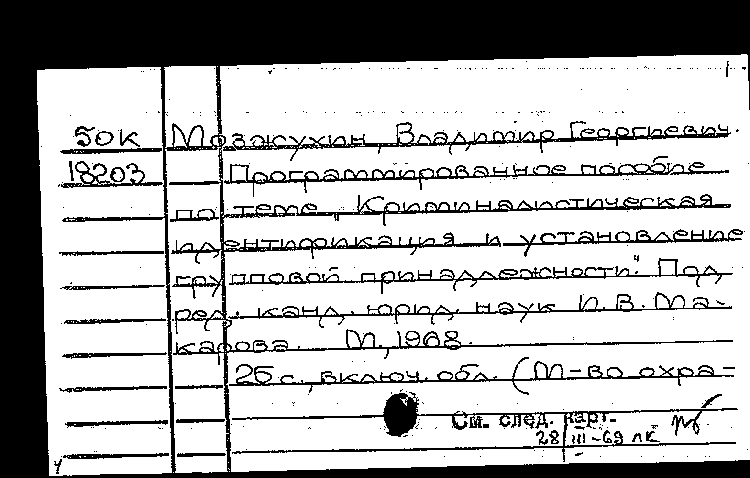 50к Мозжухин, Владимир Георгиевич.
18203 Программированное пособие
по теме „Криминалистическая
идентификация и установление
групповой принадлежности". Под
ред. канд. юрид. наук И.В. Ма-
карова. М., 1968.
26 с., включ. обл. (М-во охра-
См. след. карт.
28/III-69 лк